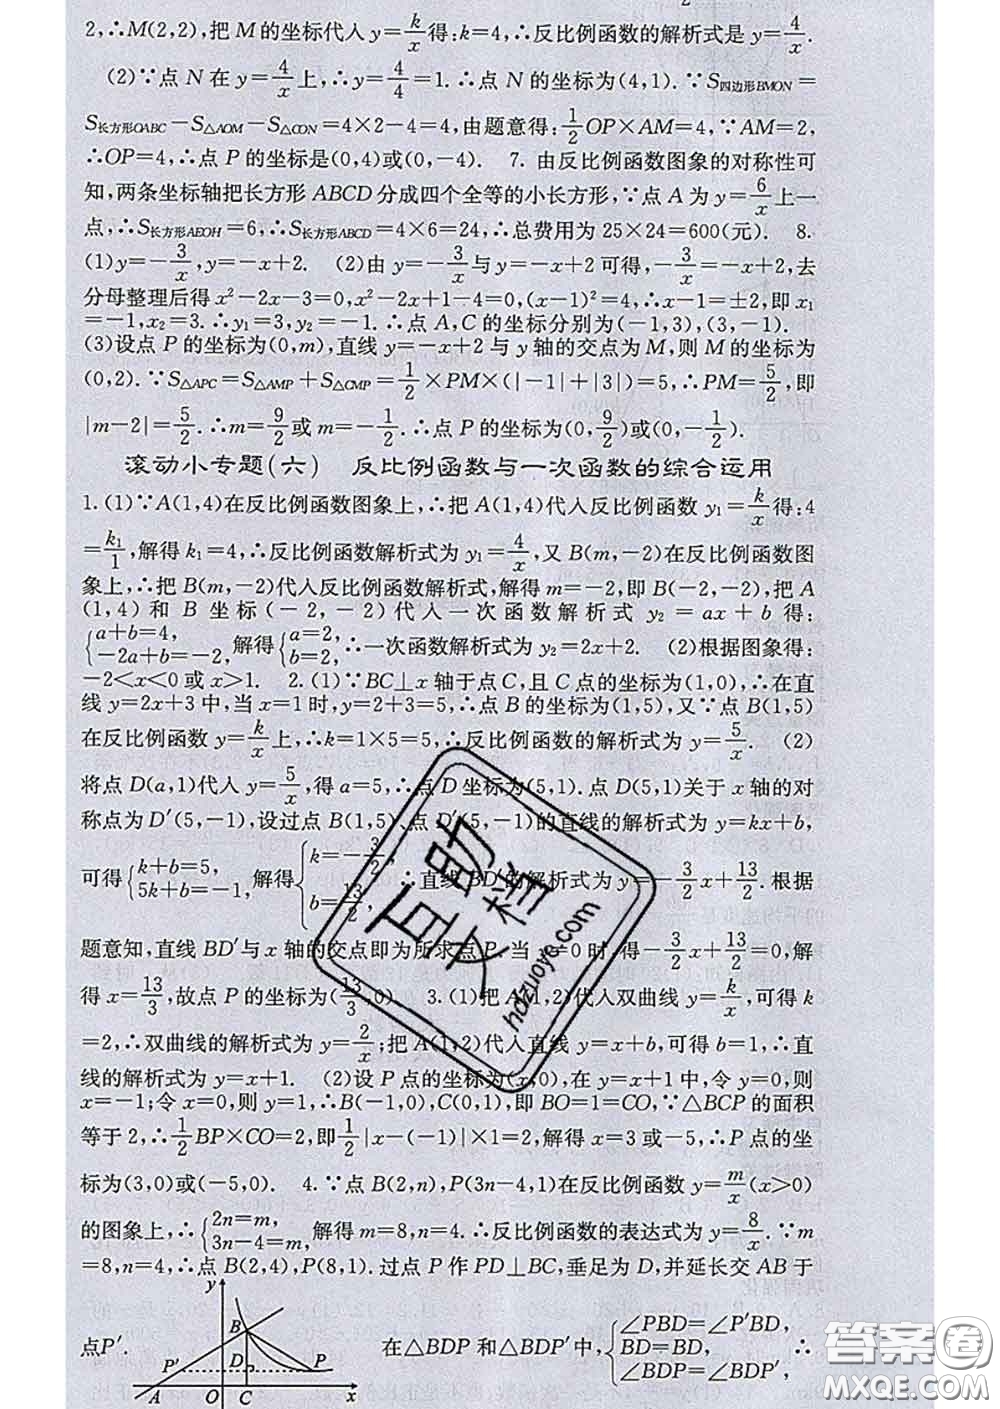 2,∴M(2,2),把M的坐标代入y=k/x得:k=4,∴反比例函数的解析式是y=4/x.
(2)∵点N在y=4/x上,∴y=4/4=1.∴点N的坐标为(4,1).∵S四边形BMON=
S长方形OABC-S△AOM-S△CON=4×2-4=4,由题意得:1/2OP×AM=4,∵AM=2,
∴OP=4,∴点P的坐标是(0,4)或(0,-4). 7. 由反比例函数图象的对称性可
知,两条坐标轴把长方形ABCD分成四个全等的小长方形,∵点A为y=6/x上一
点,∴S长方形AEOH=6,∴S长方形ABCD=4×6=24,∴总费用为25×24=600(元). 8.
(1)y=-3/x,y=-x+2. (2)由y=-3/x与y=-x+2可得,-3/x=-x+2,去
分母整理后得x²-2x-3=0,x²-2x+1-4=0,(x-1)²=4,∴x-1=±2,即x₁
=-1,x₂=3.∴y₁=3,y₂=-1.∴点A,C的坐标分别为(-1,3),(3,-1).
(3)设点P的坐标为(0,m),直线y=-x+2与y轴的交点为M,则M的坐标为
(0,2).∵S△APC=S△AMP+S△CMP=1/2×PM×(|-1|+|3|)=5,∴PM=5/2,即
|m-2|=5/2.∴m=9/2或m=-1/2.∴点P的坐标为(0,9/2)或(0,-1/2).
滚动小专题(六) 反比例函数与一次函数的综合运用
1.(1)∵A(1,4)在反比例函数图象上,∴把A(1,4)代入反比例函数y₁=k/x得:4
=k₁/1,解得k₁=4,∴反比例函数解析式为y₁=4/x,又B(m,-2)在反比例函数图
象上,∴把B(m,-2)代入反比例函数解析式,解得m=-2,即B(-2,-2),把A
(1,4)和B坐标(-2,-2)代入一次函数解析式y₂=ax+b得:
{a+b=4, -2a+b=-2, 解得{a=2, b=2, ∴一次函数解析式为y₂=2x+2. (2)根据图象得:
-2<x<0或x>1. 2.(1)∵BC⊥x轴于点C,且C点的坐标为(1,0),∴在直
线y=2x+3中,当x=1时,y=2+3=5,∴点B的坐标为(1,5),又∵点B(1,5)
在反比例函数y=k/x上,∴k=1×5=5,∴反比例函数的解析式为y=5/x. (2)
将点D(a,1)代入y=5/x,得a=5,∴点D坐标为(5,1).点D(5,1)关于x轴的对
称点为D′(5,-1),设过点B(1,5)、点D′(5,-1)的直线的解析式为y=kx+b,
可得{k+b=5, 5k+b=-1, 解得{k=-3/2, b=13/2, ∴直线BD′的解析式为y=-3/2x+13/2.根据
题意知,直线BD′与x轴的交点即为所求点P.当y=0时,得-3/2x+13/2=0,解
得x=13/3,故点P的坐标为(13/3,0) 3.(1)把A(1,2)代入双曲线y=k/x,可得k
=2,∴双曲线的解析式为y=2/x;把A(1,2)代入直线y=x+b,可得b=1,∴直
线的解析式为y=x+1. (2)设P点的坐标为(x,0),在y=x+1中,令y=0,则
x=-1;令x=0,则y=1,∴B(-1,0),C(0,1),即BO=1=CO,∵△BCP的面积
等于2,∴1/2BP×CO=2,即1/2|x-(-1)|×1=2,解得x=3或-5,∴P点的坐
标为(3,0)或(-5,0). 4.∵点B(2,n),P(3n-4,1)在反比例函数y=m/x(x>0)
的图象上,∴{2n=m, 3n-4=m, 解得m=8,n=4.∴反比例函数的表达式为y=8/x.∵m
=8,n=4,∴点B(2,4),P(8,1).过点P作PD⊥BC,垂足为D,并延长交AB于
点P′. 在△BDP和△BDP′中,{∠PBD=∠P′BD, BD=BD, ∠BDP=∠BDP′, ∴
y
B
P′ D P
A O C x
互助文档
hdzuoye.com
答案圈
MXQE.COM